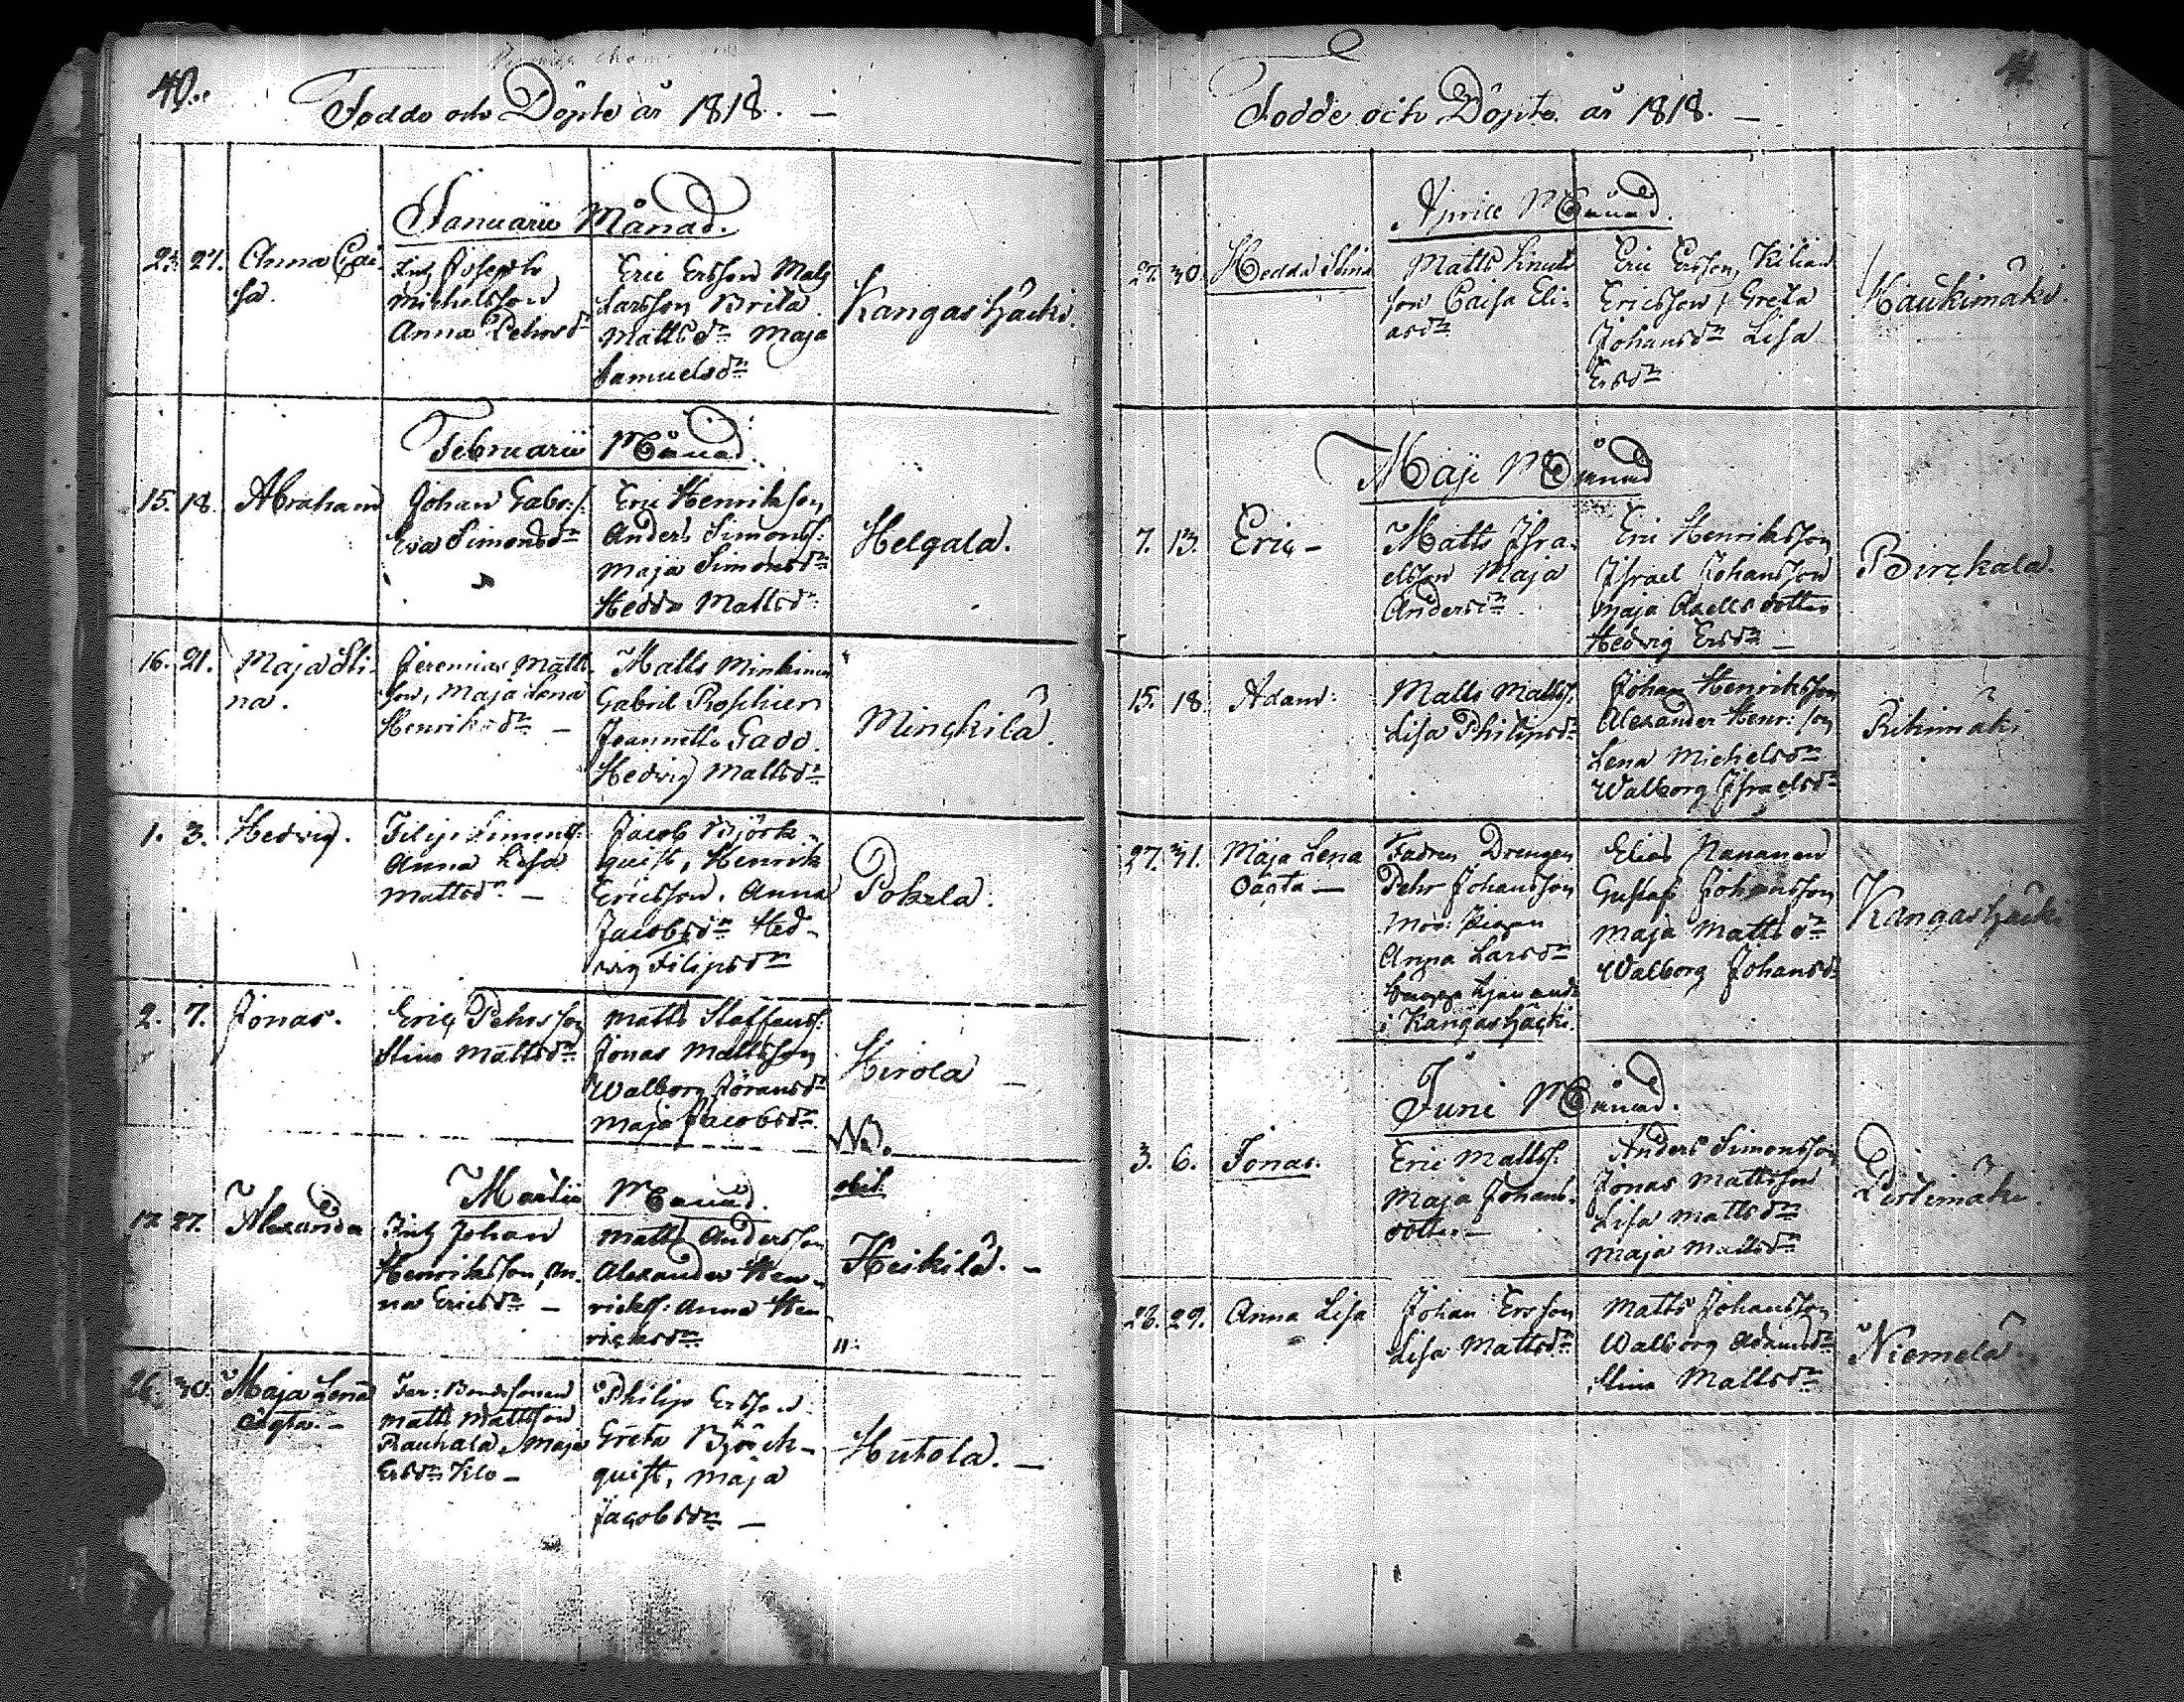 40.
Födde och Döpte år 1818. —
Januarii Månad.
23. 27. Anna Cai
sa.
Joseph
Michelsson
Anna Pehrsdr
Eric Ersson Mats
Larsson Brita
Mattsdr Maja
Samuelsdr
Kangashäcki.
Februarii Månad.
15. 18. Abraham
Johan Gabr:s.
Eva Simonsdr
Eric Henriksson
Anders Simonss:
Maja Simonsdr
Hedda Mattsdr
Helgala.
16. 21. Maja Sti-
na.
Jeremias Matts
son, Maja Lena
Henriksdr —
Matts Minkinen
Gabriel Roschier
Jeannette Gadd.
Hedvig Mattsdr
Minckilä.
1. 3. Hedvig.
Filip Simonss:
Anna Lisa
Mattsdr —
Jacob Björk-
quist, Henrik
Ericsson. Anna
Jacobsdr Hed-
vig Filipsdr
Pokela.
2. 7. Jonas.
Eric Pehrsson
Stina Mattsdr
Matts Staffanss:
Jonas Mattsson
Walborg Göransdr
Maja Jacobsdr
Hirola —
Martii Månad.
27. Alexander
Johan
Henriksson, An-
na Ericsdr —
Matts Andersson
Alexander Hen-
rickss: Anna Hen
ricksdr
Heikilä. —
26. 30. Maja Lena
oägta. —
Matts Mattsson
Rauhala, Maja
Ersdr Kilo —
Philip Ersson
Greta Björck-
quist, Maja
Jacobsdr —
Hutola. —
Födde och Döpte år 1818. —
Aprill Månad.
27. 30. Hedda Stina
Matts Knuts
son Caisa Eli-
asdr
Eric Ersson, Kilian
Ericsson, Greta
Johansdr Lisa
Ersdr
Haukimäki.
Maji Månad
7. 13. Eric —
Matts Isra-
elsson Maja
Andersdr
Eric Henriksson
Israel Johansson
Maja Axelsdotter
Hedvig Ersdr —
Birckala.
15. 18. Adam:
Matts Mattss:
Lisa Philipsdr
Johan Henriksson
Alexander Henr:son
Lena Michelsdr
Walborg Israelsdr
Rihimäki
27. 31. Maja Lena
oägta —
Fadren Drengen
Pehr Johansson
Mod: Pigan
Anna Larsdr
tjenande
i Kangashäcki.
Elias Nananen
Gustaf Johansson
Maja Mattsdr
Walborg Johansdr
Kangashäcki
Junii Månad.
3. 6. Jonas.
Eric Mattss:
Maja Johans-
dotter —
Anders Simonsson
Jonas Mattsson
Lisa Mattsdr
Maja Mattsdr
28. 29. Anna Lisa
Johan Ersson
Lisa Mattsdr
Matts Johansson
Walborg Adamsdr
Stina Mattsdr
Niemelä